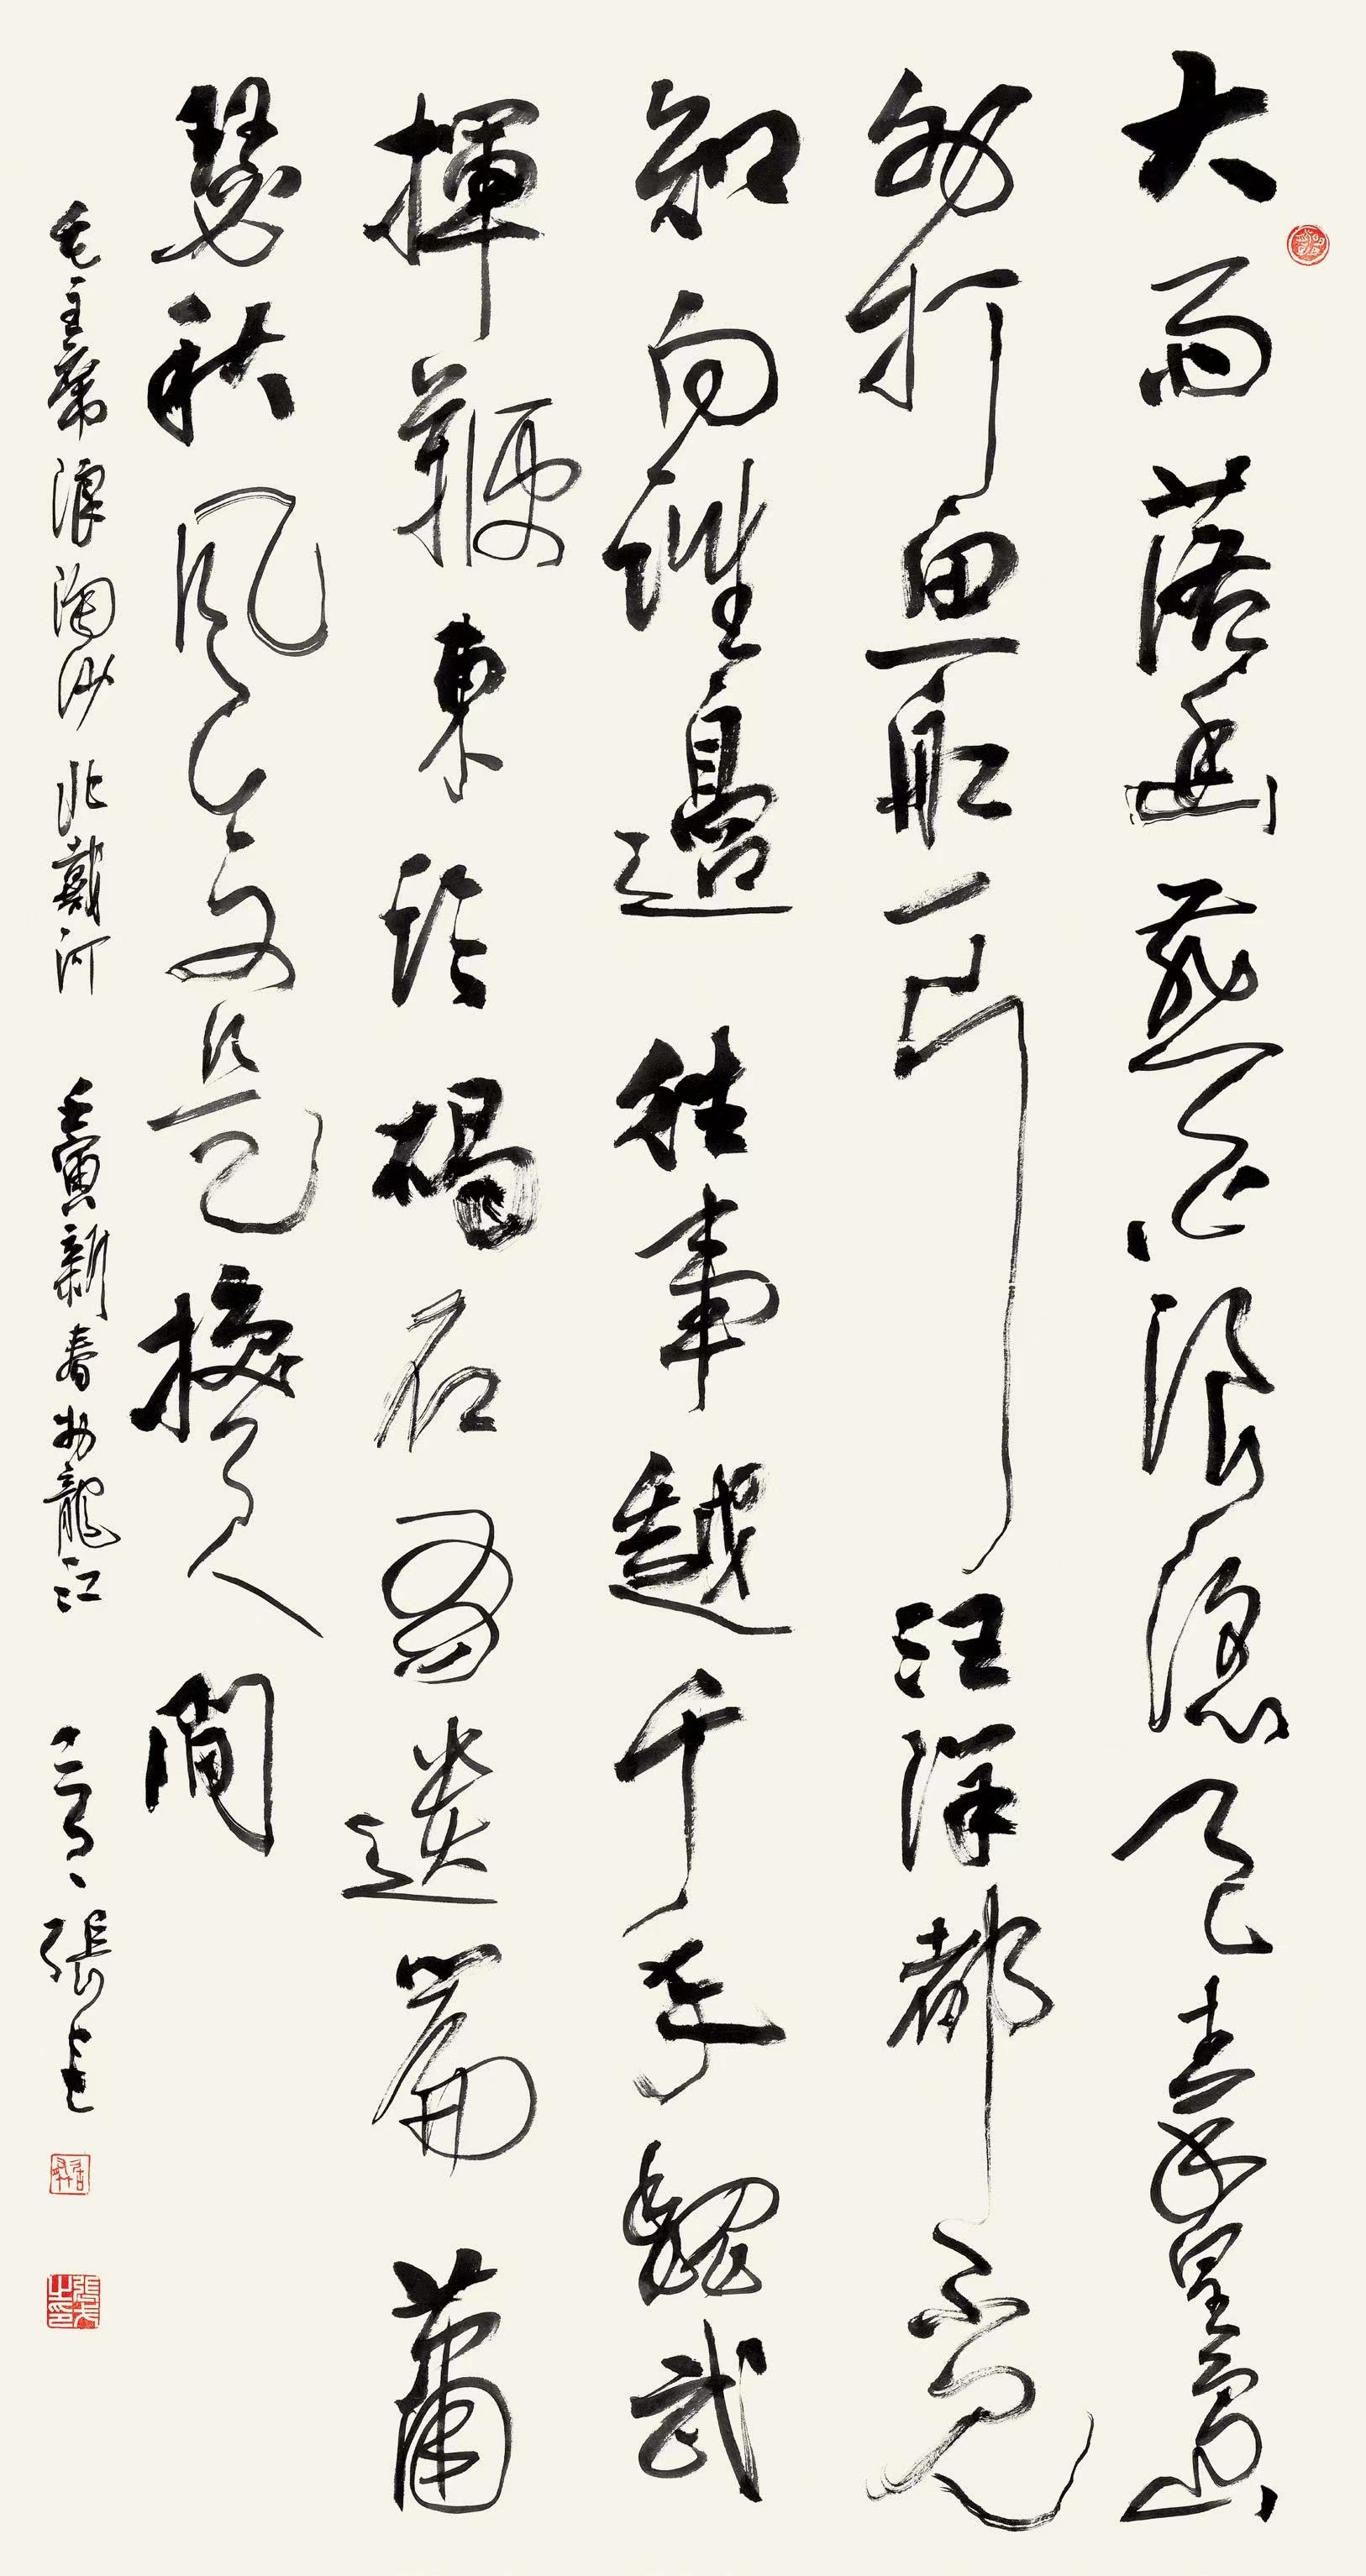 大雨落幽燕白浪滔天秦皇島
外打魚船一片汪洋都不見
知向誰邊往事越千年魏武
揮鞭東臨碣石有遺篇蕭
瑟秋風今又是換了人間
毛主席浪淘沙北戴河 壬寅新春於龍江 張戈
張戈之印